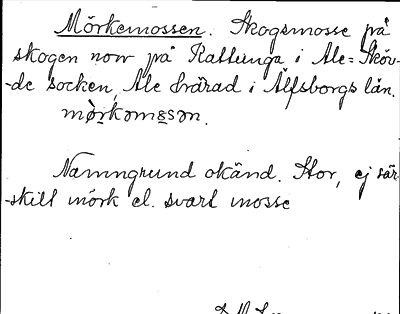 Mörkemossen. Skogsmosse på
skogen norr på Rattunga i Ale=Sköv-
-de socken, Ale härad i Älfsborgs län.
Namngrund okänd. Stor, ej sär-
-skilt mörk el. svart mosse